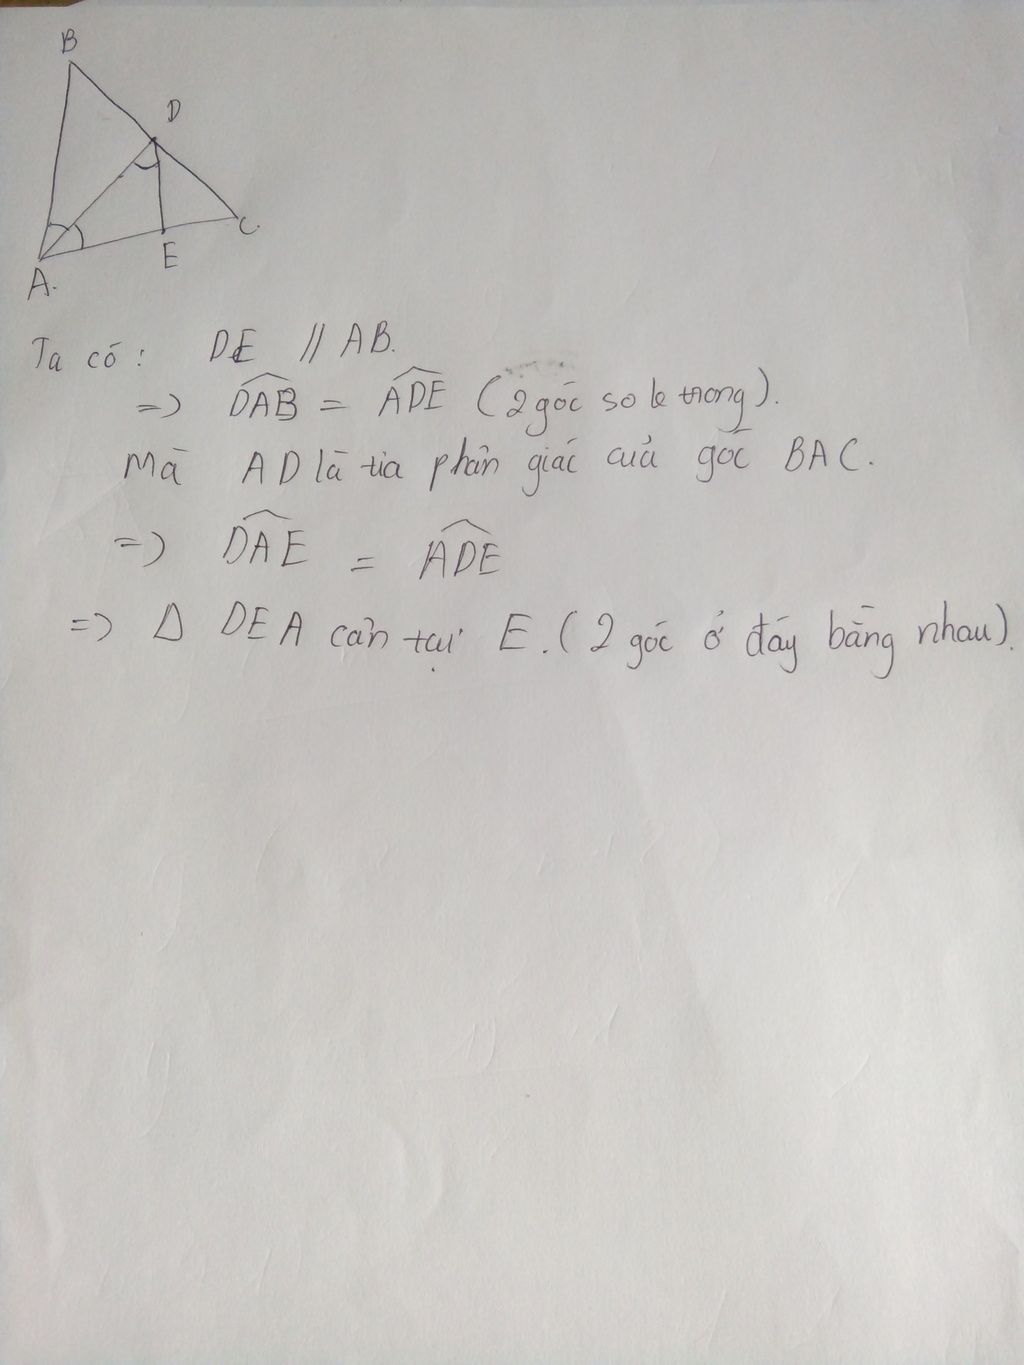 B
D
C.
E
A.
Ta có: DE // AB.
=> \widehat{DAB} = \widehat{ADE} (2 góc so le trong).
Mà AD là tia phân giác của góc BAC.
=> \widehat{DAE} = \widehat{ADE}
=> Δ DEA cân tại E. (2 góc ở đáy bằng nhau).